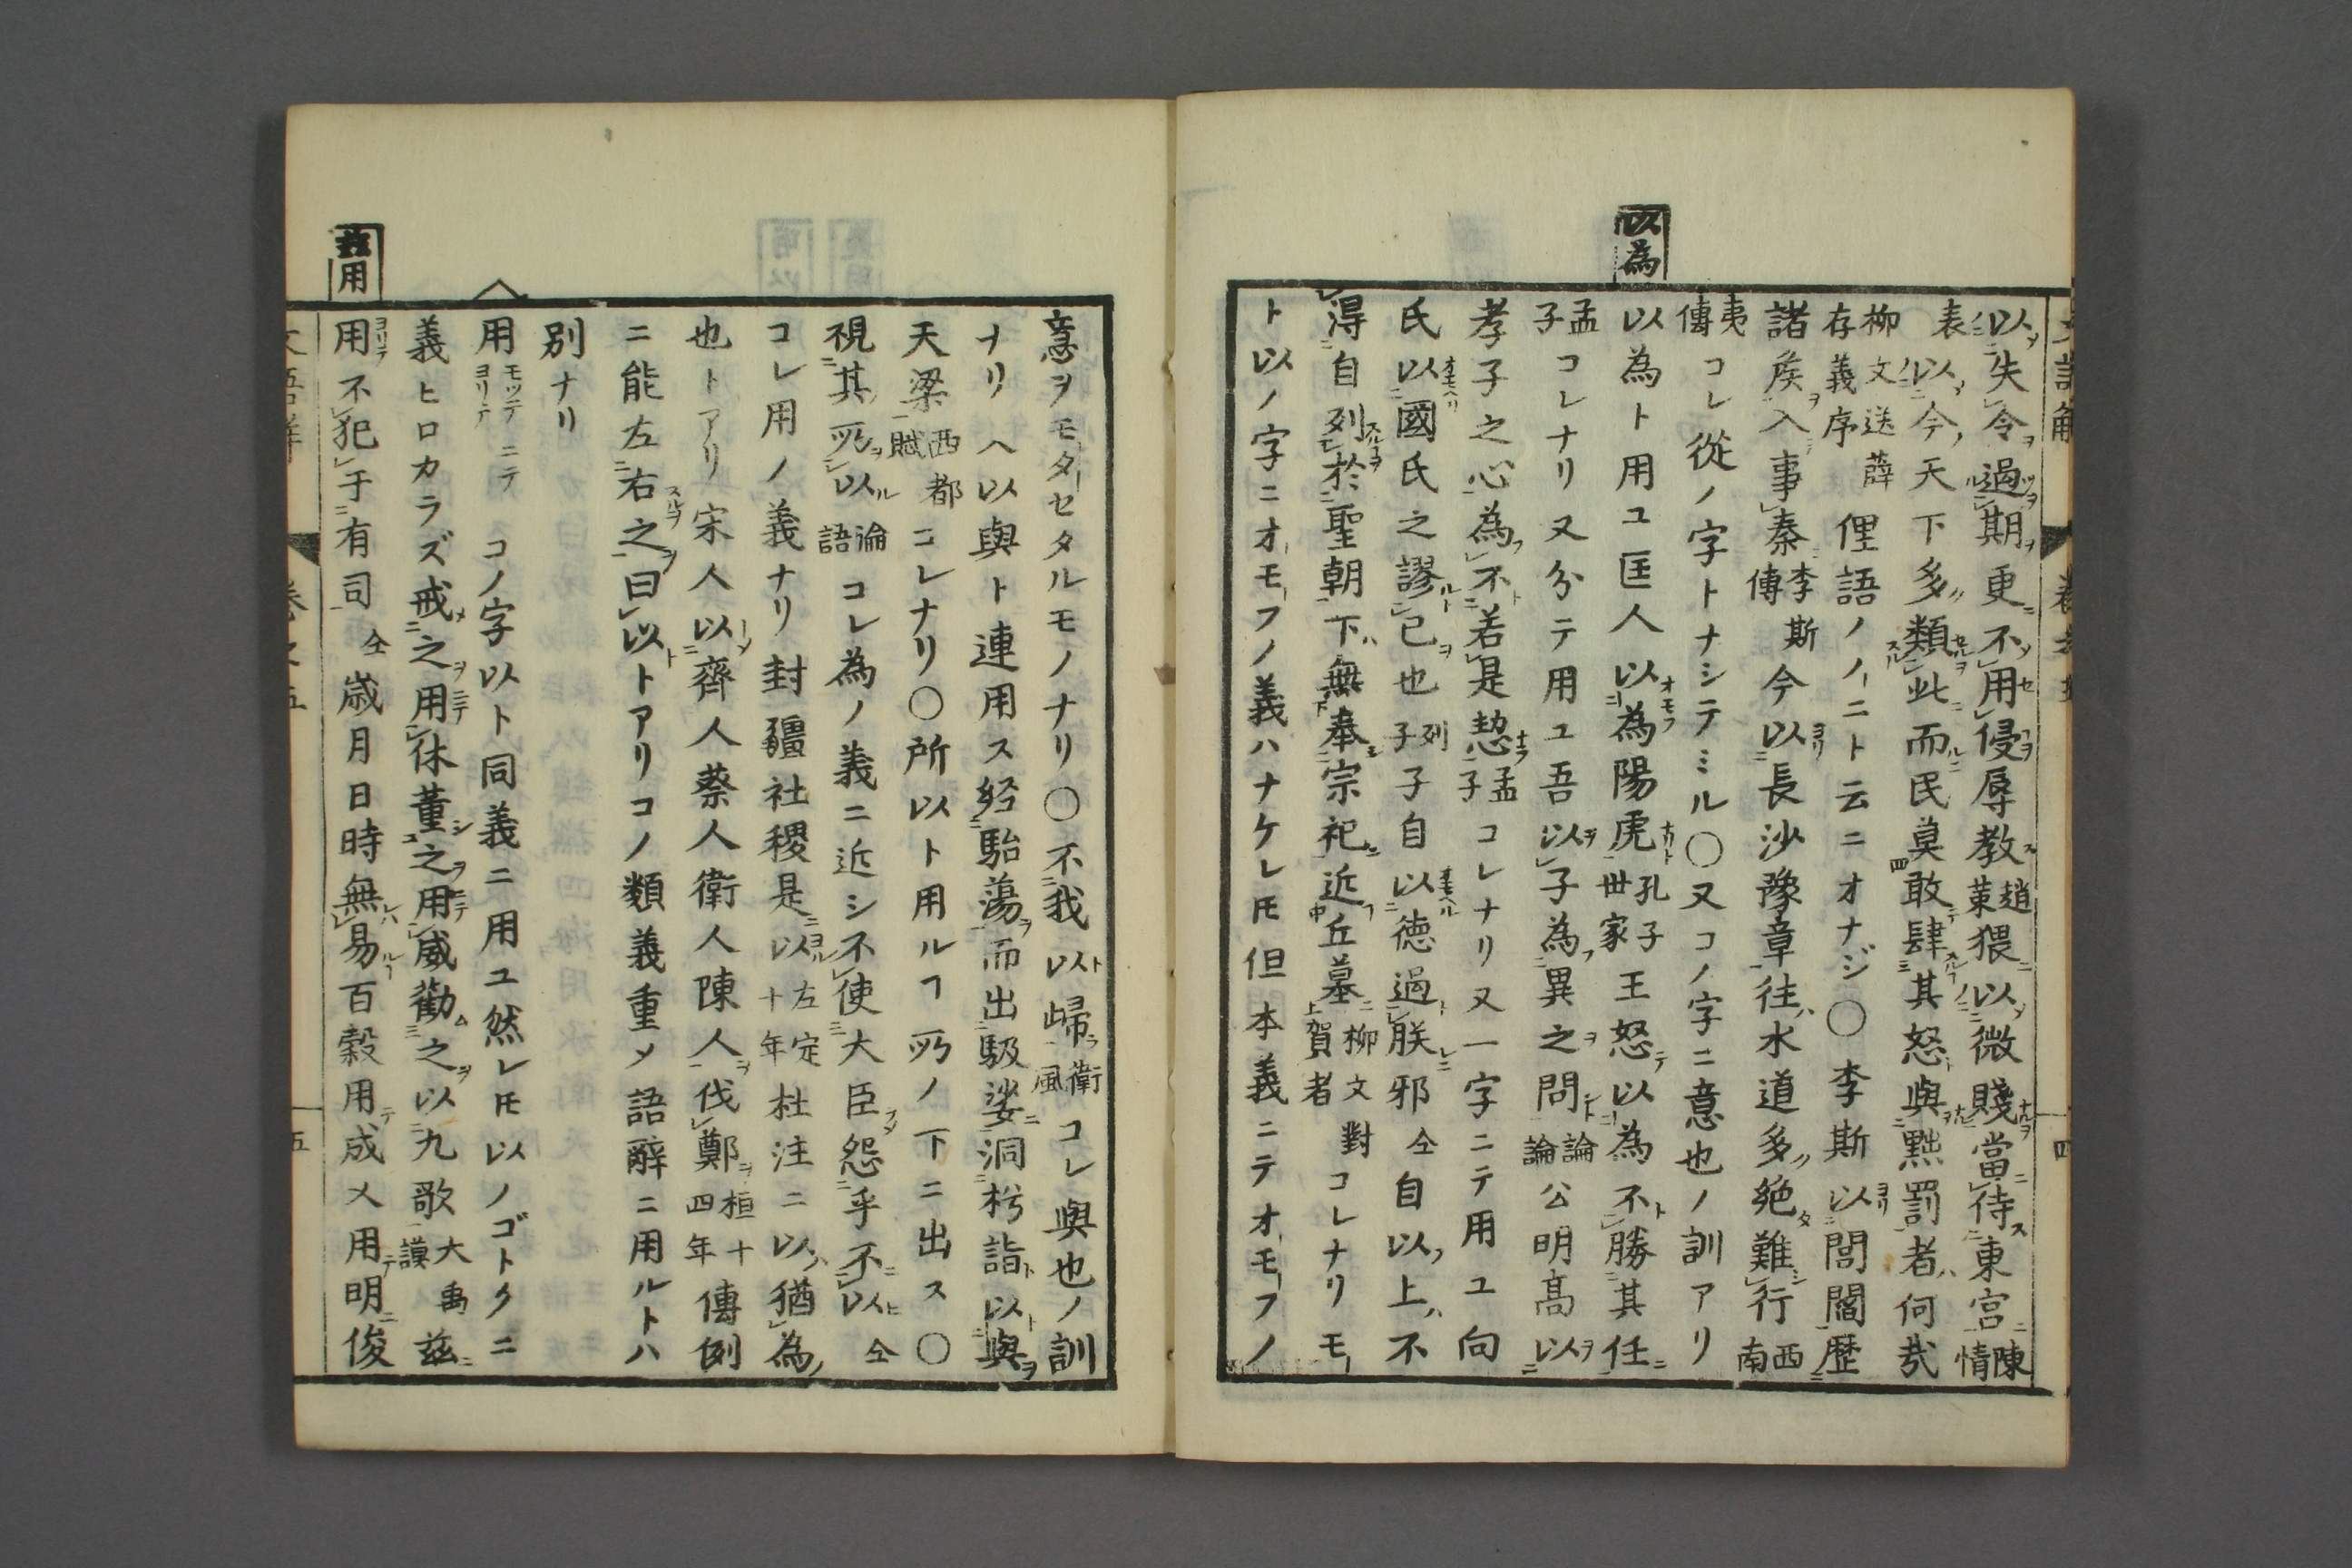 以為
以失令過期更不用侵辱教趙䒾猥以微賤當待東宮陳情
表以今天下多類此而民莫敢肆其怒與黜罰者何哉
柳文送薛存義序俚語ノノニト云ニオナジ〇李斯以閭閻歴
諸矦入事秦李斯傳今以長沙豫章往水道多絶難行西南
夷傳コレ從ノ字トナシテミル〇又コノ字ニ意也ノ訓アリ
以為ト用ユ匡人以為陽虎孔子世家王怒以為不勝其任
孟子コレナリ又分テ用ユ吾以子為異之問論論公明髙以
孝子之心為不若是恝孟子コレナリ又一字ニテ用ユ向
氏以國氏之謬己也列子子自以徳過朕邪仝自以上不
得自列於聖朝下無奉宗祀近丘墓柳文對賀者コレナリモ
ト以ノ字ニオモフノ義ハナケレ𪜈但本義ニテオモフノ
意ヲモタセタルモノナリ〇不我以歸衛風コレ與也ノ訓
ナリヘ以與ト連用ス經駘蕩而出馺娑洞枍詣以與
天梁西都賦コレナリ〇所以ト用ルヿ所ノ下ニ出ス〇
視其所以論語コレ為ノ義ニ近シ不使大臣怨乎不以仝
コレ用ノ義ナリ封疆社稷是以左定十年杜注ニ以猶為
也トアリ宋人以齊人蔡人衛人陳人伐鄭桓十四年傳例
ニ能左右之曰以トアリコノ類義重メ語辭ニ用ルトハ
別ナリ
用モツテヨリテニテコノ字以ト同義ニ用ユ然レ𪜈以ノゴトクニ
義ヒロカラズ戒之用休董之用威勸之以九歌大禹謨茲
用不犯于有司仝歳月日時無易百穀用成乂用明俊
茲用